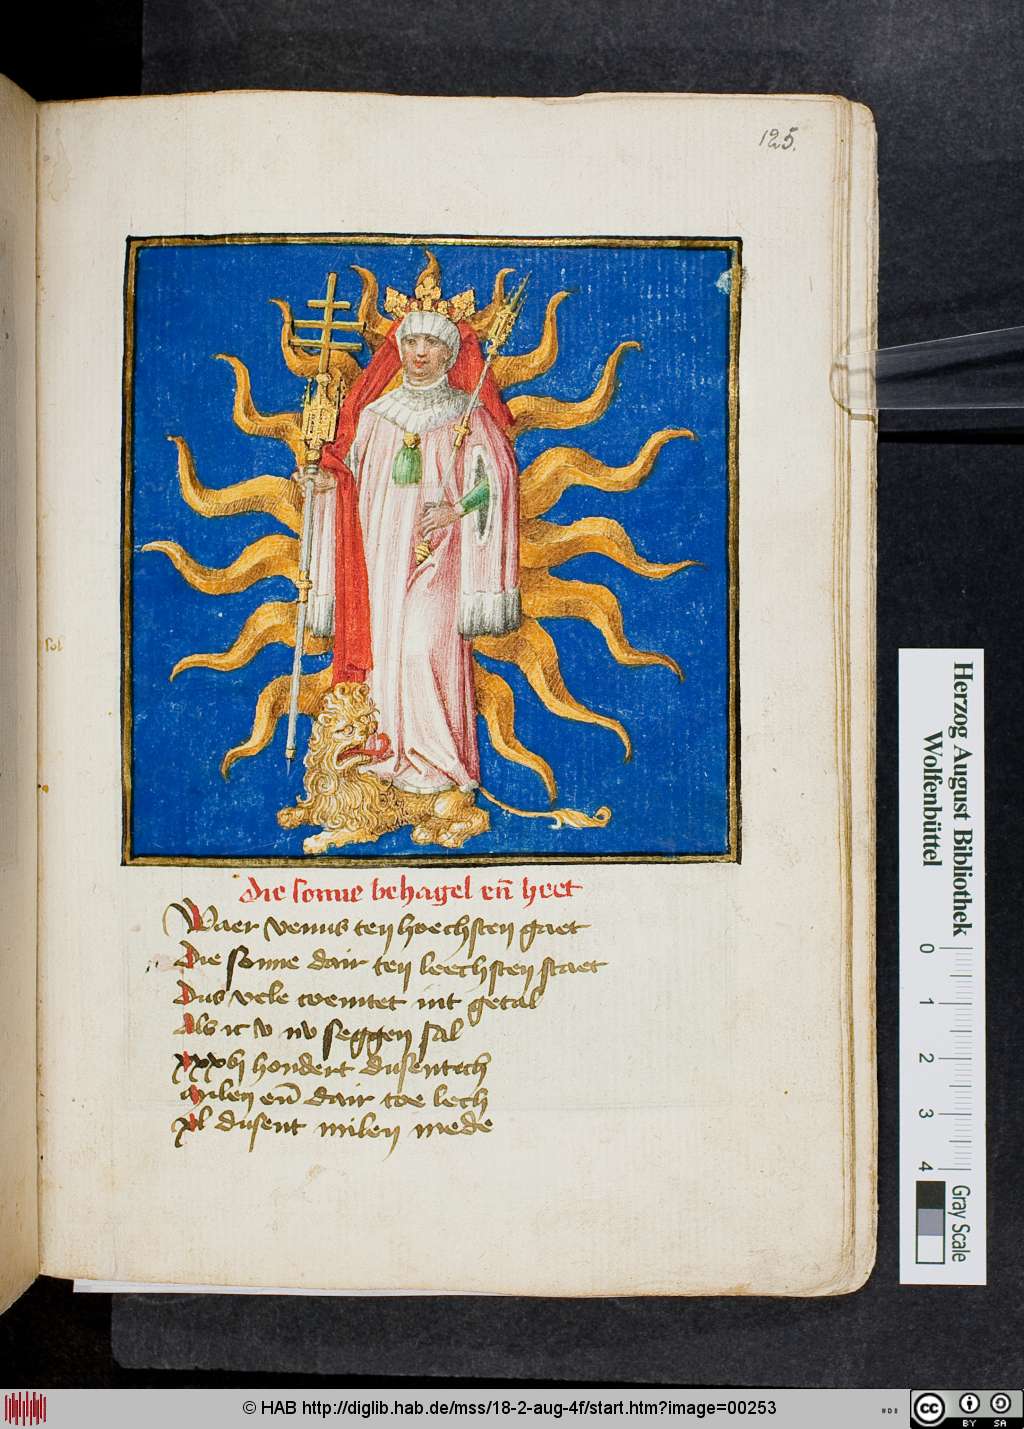 125.
Sol
die sonne behagel en̄ heet
Waer venus ten hoechsten gaet
Die sonne dair ten leechsten staet
Dus vele coemtet int getal
Als ic v nv seggen sal
xxxvj hondert dusentech
Milen en̄ dair toe lech
xl dusent milen mede
Herzog August Bibliothek
Wolfenbüttel
0 1 2 3 4
Gray Scale
© HAB http://diglib.hab.de/mss/18-2-aug-4f/start.htm?image=00253
cc BY SA